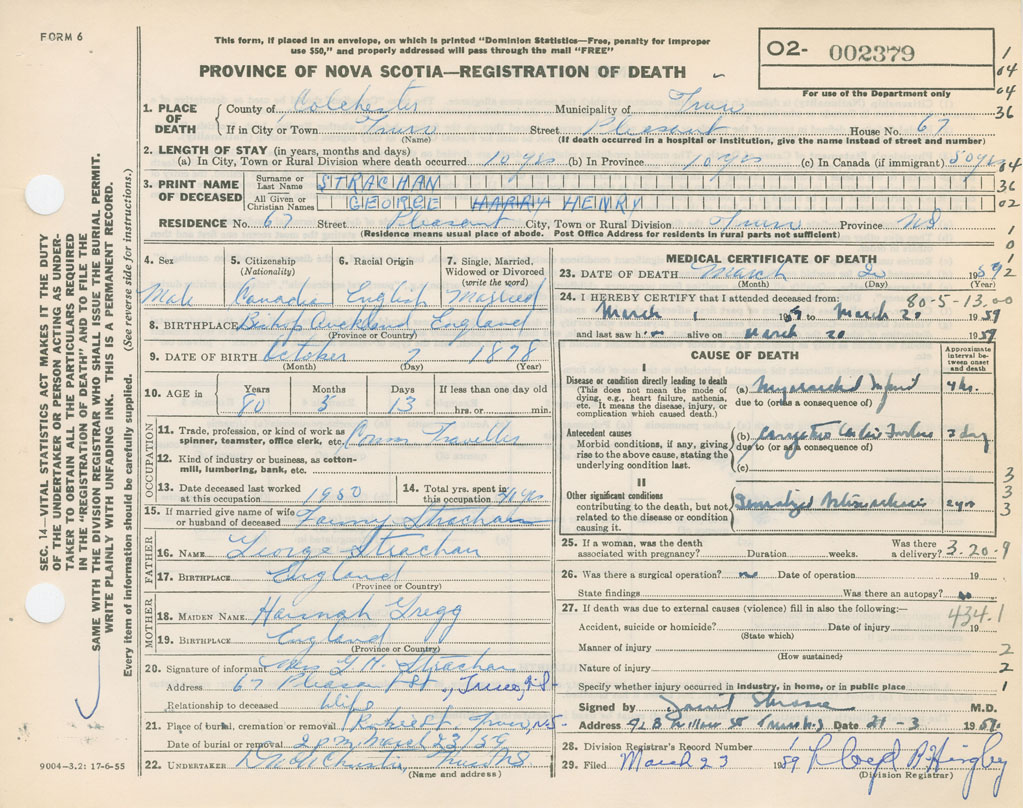 FORM 6
This form, if placed in an envelope, on which is printed "Dominion Statistics—Free, penalty for improper
use $50," and properly addressed will pass through the mail "FREE"
O2- 002379
For use of the Department only
PROVINCE OF NOVA SCOTIA—REGISTRATION OF DEATH
1
04
04
36
1. PLACE OF DEATH
County of Colchester Municipality of Truro
If in City or Town Truro Street Pleasent House No. 67
(Name) (If death occurred in a hospital or institution, give the name instead of street and number)
2. LENGTH OF STAY (in years, months and days)
(a) In City, Town or Rural Division where death occurred 10 yrs (b) In Province 10 yrs (c) In Canada (if immigrant) 50 yrs
04
3. PRINT NAME OF DECEASED
Surname or Last Name STRACHAN
36
All Given or Christian Names GEORGE HARRY HENRY
02
RESIDENCE No. 67 Street Pleasent City, Town or Rural Division Truro Province NS
(Residence means usual place of abode. Post Office Address for residents in rural parts not sufficient)
1
0
1
2
4. Sex
Male
5. Citizenship
(Nationality)
Canadian
6. Racial Origin
English
7. Single, Married,
Widowed or Divorced
(write the word)
Married
8. BIRTHPLACE Bishop Auckland England
(Province or Country)
9. DATE OF BIRTH October 7 1878
(Month) (Day) (Year)
10. AGE in
Years Months Days If less than one day old
80 5 13 hrs. or min.
OCCUPATION
11. Trade, profession, or kind of work as
spinner, teamster, office clerk, etc. Comm Traveller
12. Kind of industry or business, as cotton-
mill, lumbering, bank, etc.
13. Date deceased last worked
at this occupation 1950
14. Total yrs. spent in
this occupation yrs
15. If married give name of wife
or husband of deceased Fanny Strachan
FATHER
16. NAME George Strachan
17. BIRTHPLACE England
(Province or Country)
MOTHER
18. MAIDEN NAME Hannah Gregg
19. BIRTHPLACE England
(Province or Country)
20. Signature of informant Mrs G. H. Strachan
Address 67 Pleasant St., Truro, N.S.
Relationship to deceased Wife
21. Place of burial, cremation or removal Truro, N.S.
Date of burial or removal 2 pm March 23/59
22. UNDERTAKER Truro NS
(Name and address)
9004—3.2: 17-6-55
MEDICAL CERTIFICATE OF DEATH
23. DATE OF DEATH March 20 1959
(Month) (Day) (Year)
80-5-13.00
24. I HEREBY CERTIFY that I attended deceased from:
March 1 1959 to March 20 1959
and last saw him alive on March 20 1959
CAUSE OF DEATH
Approximate
interval be-
tween onset
and death
I
Disease or condition directly leading to death
(This does not mean the mode of
dying, e.g., heart failure, asthenia,
etc. It means the disease, injury, or
complication which caused death.)
(a) Myocardial Infarct 4 hrs.
due to (or as a consequence of)
Antecedent causes
Morbid conditions, if any, giving
rise to the above cause, stating the
underlying condition last.
(b) Congestive Cardiac Failure
due to (or as a consequence of)
(c)
II
Other significant conditions
contributing to the death, but not
related to the disease or condition
causing it.
Generalized Arteriosclerosis
3
3
3
25. If a woman, was the death
associated with pregnancy? Duration weeks. Was there
a delivery? 3.20.9
26. Was there a surgical operation? no Date of operation 19
State findings Was there an autopsy? no
27. If death was due to external causes (violence) fill in also the following:—
434.1
Accident, suicide or homicide? Date of injury 19
(State which)
Manner of injury 2
(How sustained)
Nature of injury 2
Specify whether injury occurred in industry, in home, or in public place 1
Signed by M.D.
Address Willow St Truro Date 21-3 1959
28. Division Registrar's Record Number
29. Filed March 23 1959
(Division Registrar)
SEC. 14—VITAL STATISTICS ACT MAKES IT THE DUTY
OF THE UNDERTAKER OR PERSON ACTING AS UNDER-
TAKER TO OBTAIN ALL THE PARTICULARS REQUIRED
IN THE "REGISTRATION OF DEATH" AND TO FILE THE
SAME WITH THE DIVISION REGISTRAR WHO SHALL ISSUE THE BURIAL PERMIT.
WRITE PLAINLY WITH UNFADING INK. THIS IS A PERMANENT RECORD.
Every item of information should be carefully supplied. (See reverse side for instructions.)